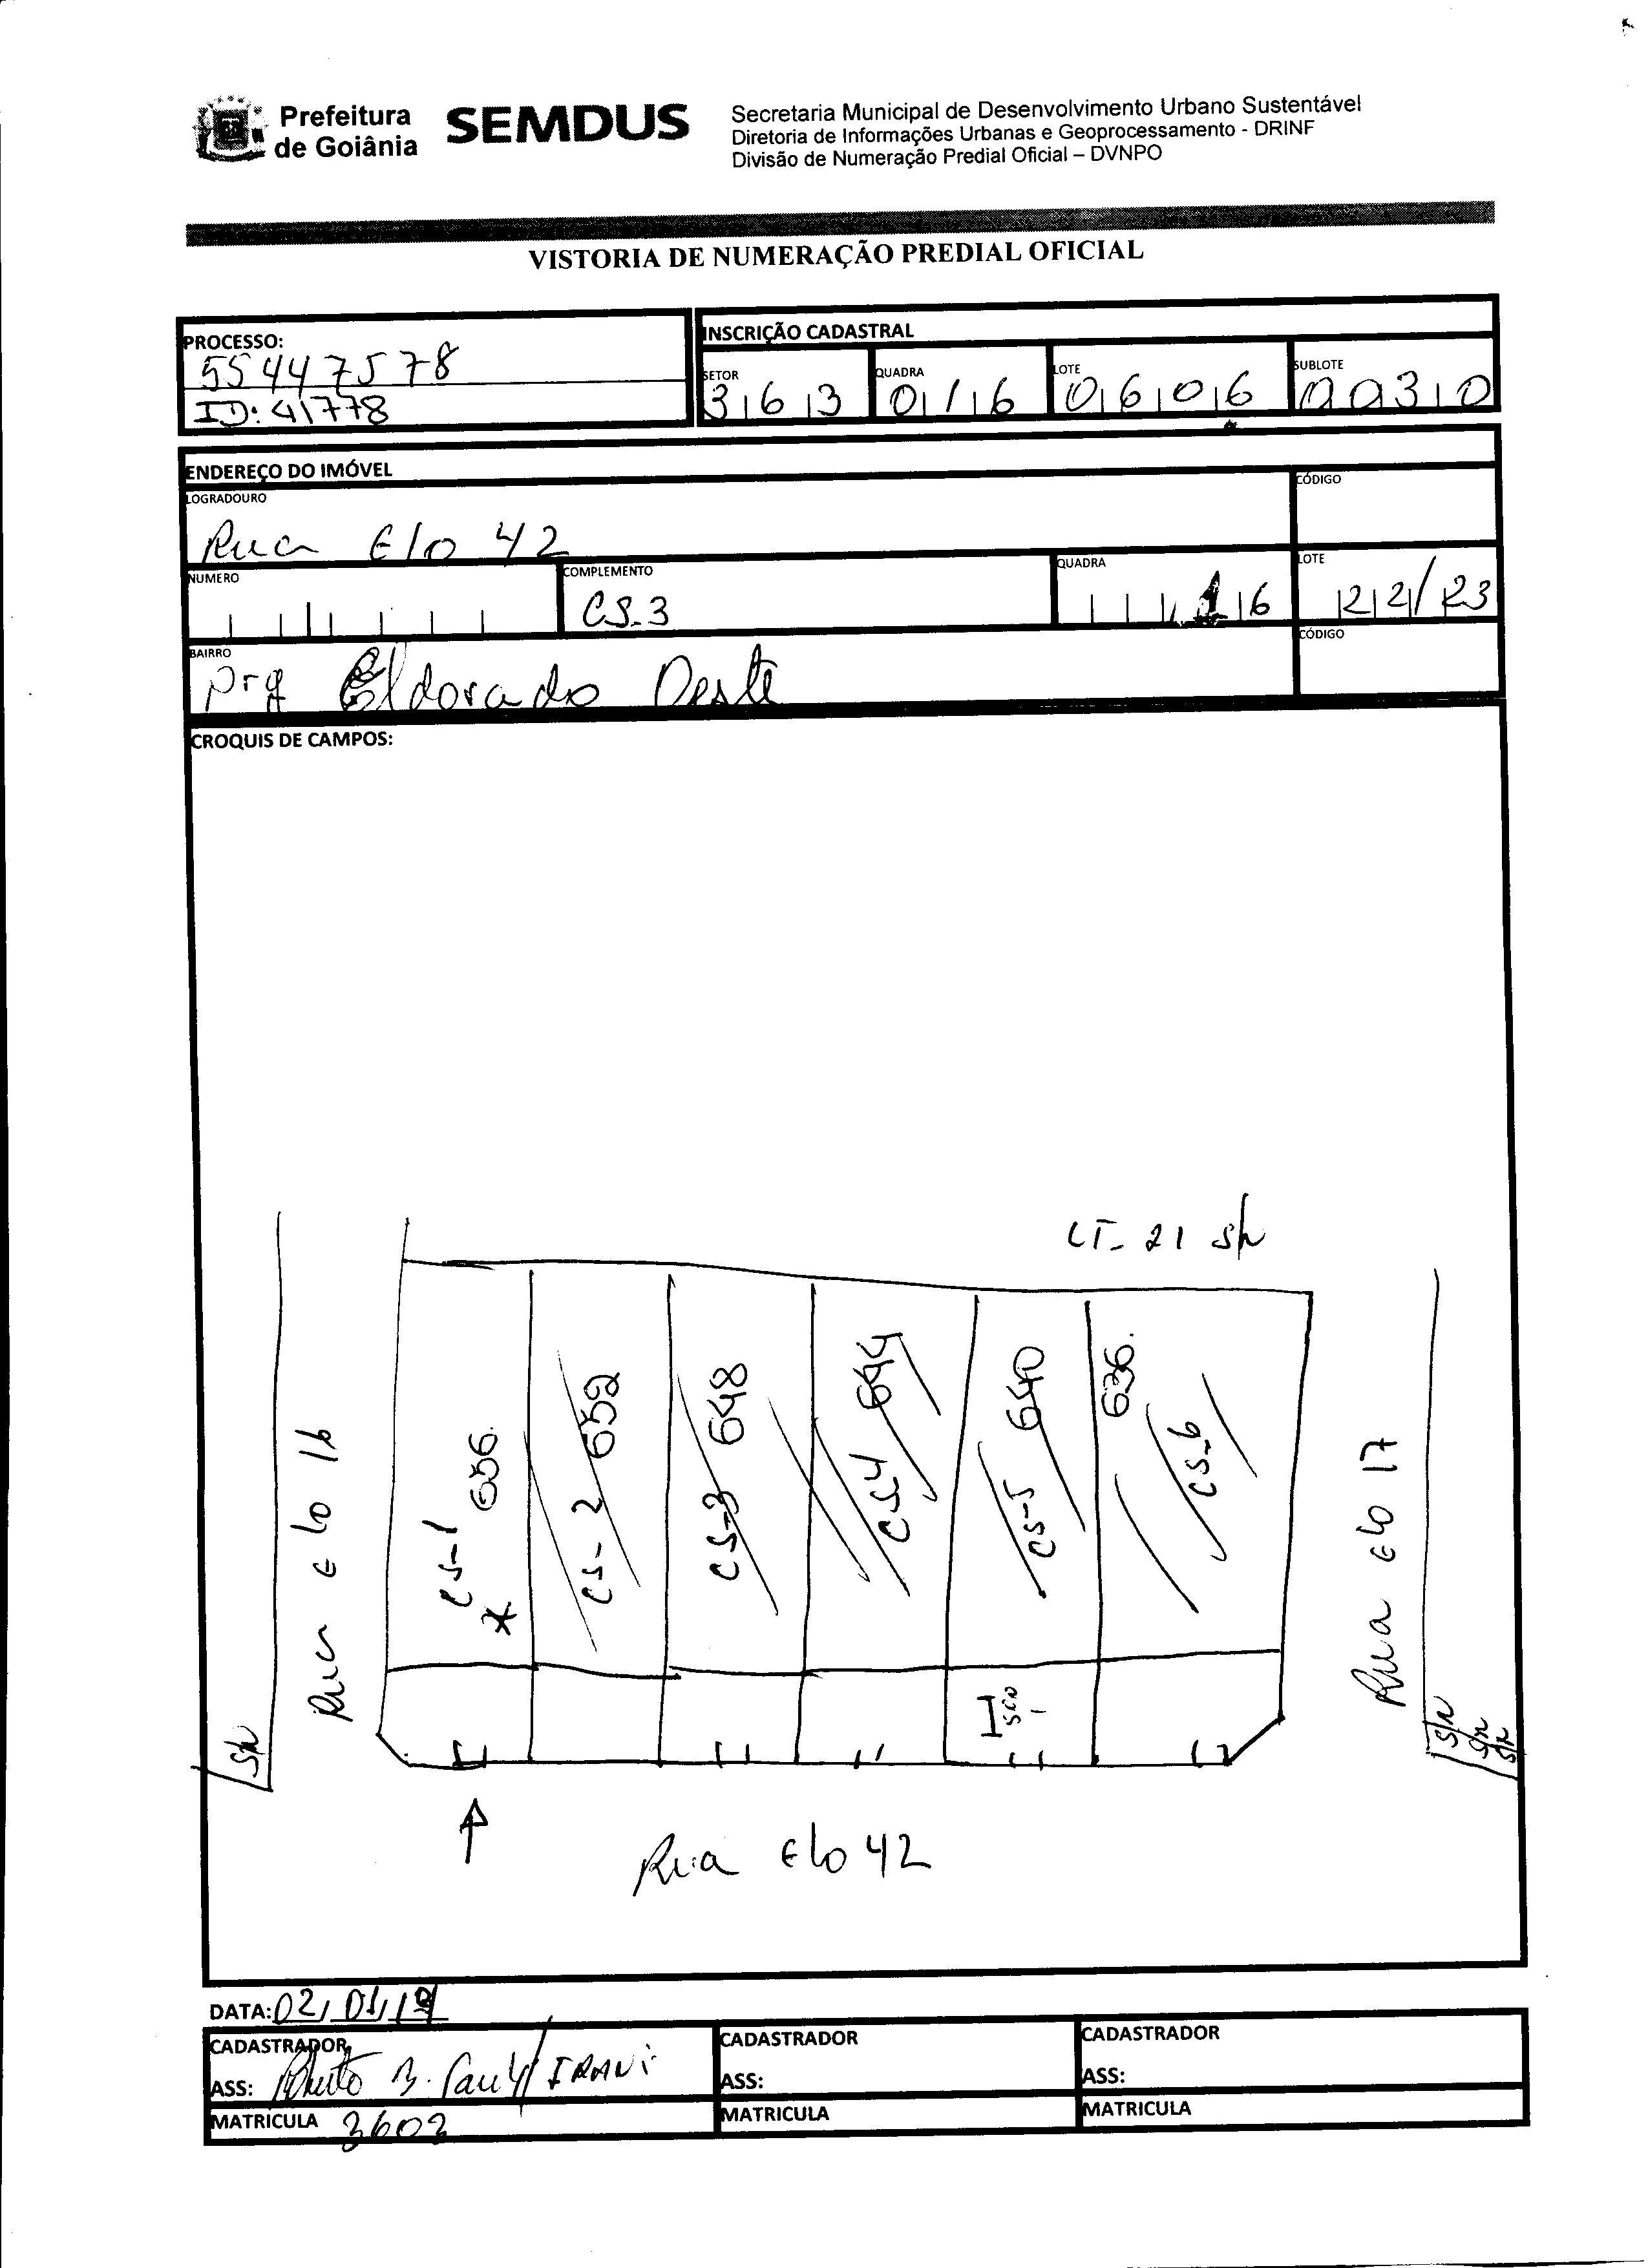 Prefeitura
de Goiânia
SEMDUS
Secretaria Municipal de Desenvolvimento Urbano Sustentável
Diretoria de Informações Urbanas e Geoprocessamento - DRINF
Divisão de Numeração Predial Oficial – DVNPO
VISTORIA DE NUMERAÇÃO PREDIAL OFICIAL
PROCESSO:
55447578
ID: 41778
INSCRIÇÃO CADASTRAL
SETOR
363
QUADRA
0116
LOTE
0606
SUBLOTE
0030
ENDEREÇO DO IMÓVEL
LOGRADOURO
Rua Elo 42
CÓDIGO
NUMERO
COMPLEMENTO
CS-3
QUADRA
16
LOTE
22/23
BAIRRO
Prq Eldorado Oeste
CÓDIGO
CROQUIS DE CAMPOS:
LT- 21 s/n
Rua Elo 16
s/n
CS-1 656.
CS-2 652
CS-3 648
CS-4 644
CS-5 640
636.
CS-6
Rua Elo 17
s/n
s/n
s/n
Rua Elo 42
DATA: 02/01/19
CADASTRADOR
ASS: IRANI
MATRICULA 3602
CADASTRADOR
ASS:
MATRICULA
CADASTRADOR
ASS:
MATRICULA